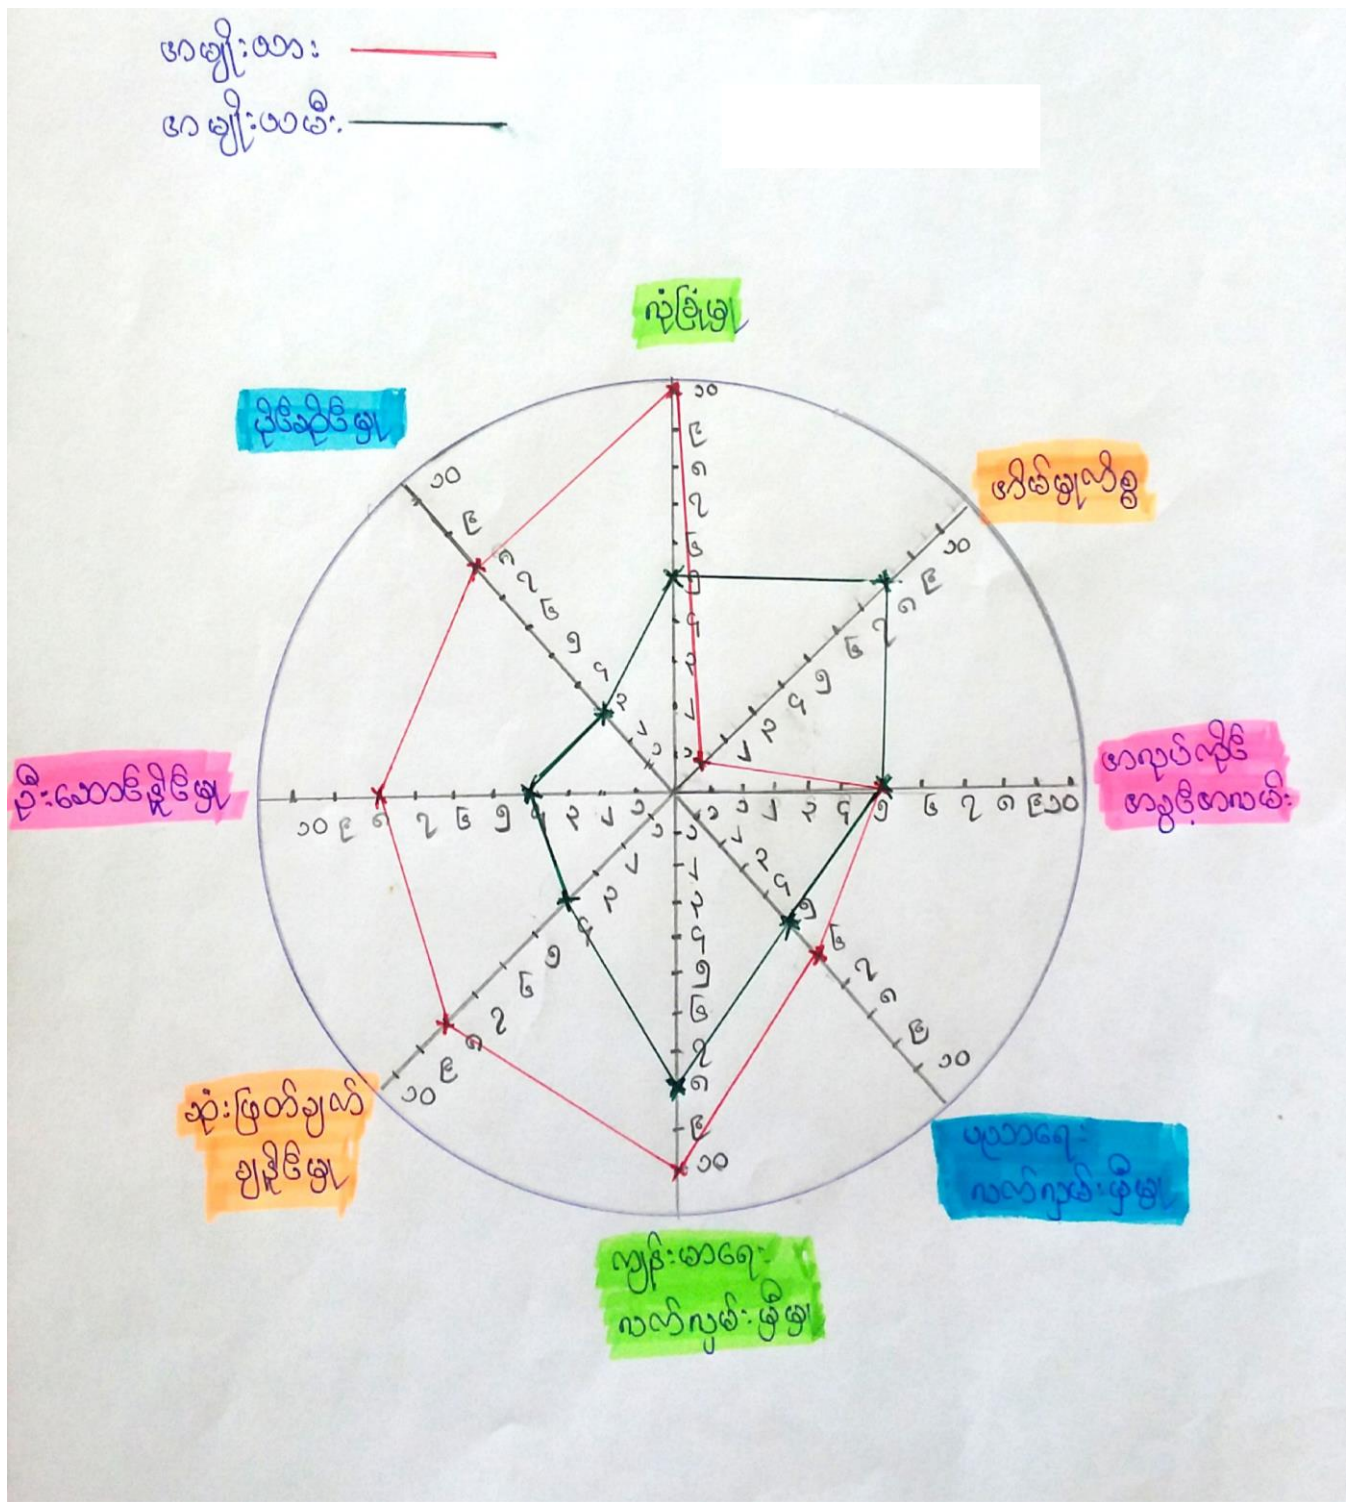 အမျိုးသား
အမျိုးသမီး
လုံခြုံမှု
ပိုင်ဆိုင်မှု
အိမ်မှုကိစ္စ
ဦးဆောင်နိုင်မှု
အလုပ်ကိုင်
အခွင့်အလမ်း
ဆုံးဖြတ်ချက်
ချနိုင်မှု
ပညာရေး
လက်လှမ်းမှီမှု
ကျန်းမာရေး
လက်လှမ်းမှီမှု
၁၀
၉
၈
၇
၆
၅
၄
၃
၂
၁
၁၀
၉
၈
၇
၆
၅
၄
၃
၂
၁
၁၀
၉
၈
၇
၆
၅
၄
၃
၂
၁၀ ၉ ၈ ၇ ၆ ၅ ၄ ၃ ၂ ၁
၁ ၂ ၃ ၄ ၅ ၆ ၇ ၈ ၉ ၁၀
၂
၃
၄
၅
၆
၇
၈
၉
၁၀
၁
၂
၃
၄
၅
၆
၇
၈
၉
၁၀
၂
၃
၄
၅
၆
၇
၈
၉
၁၀